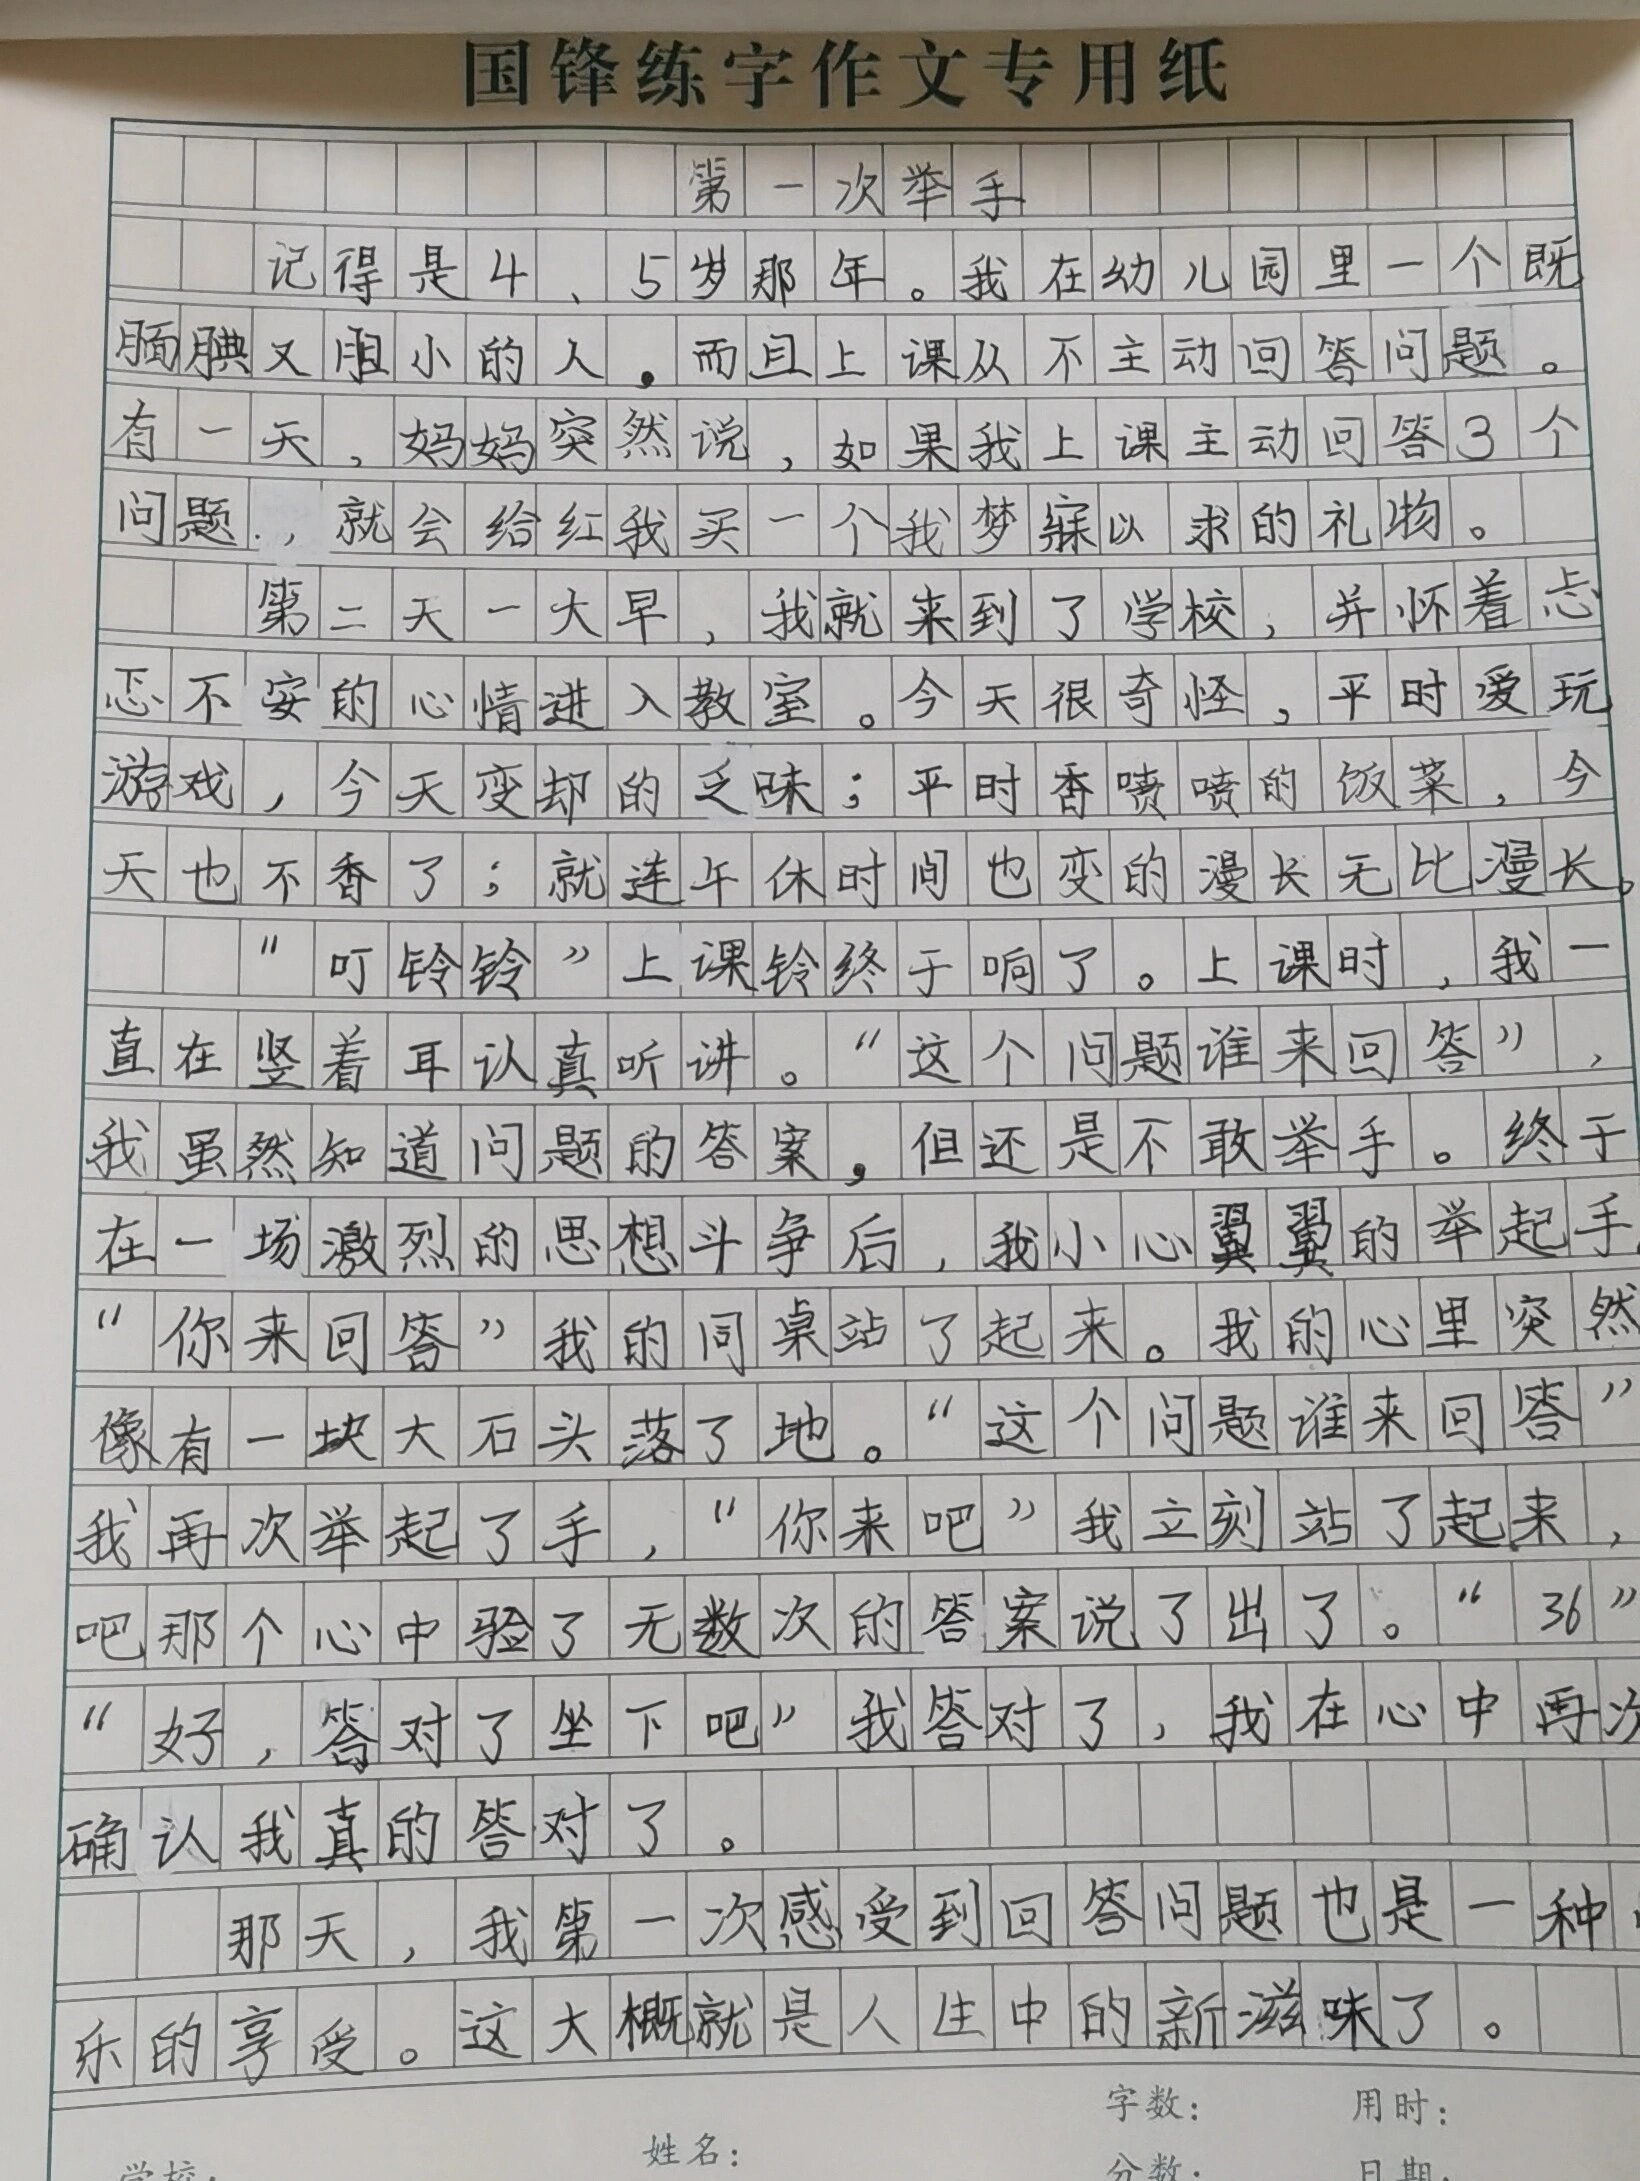 国锋练字作文专用纸
第一次举手
记得是4、5岁那年。我在幼儿园里一个既
腼腆又胆小的人。而且上课从不主动回答问题。
有一天，妈妈突然说，如果我上课主动回答3个
问题，就会给红我买一个我梦寐以求的礼物。
第二天一大早，我就来到了学校，并怀着忐
忑不安的心情进入教室。今天很奇怪，平时爱玩
游戏，今天变却的乏味；平时香喷喷的饭菜，今
天也不香了；就连午休时间也变的漫长无比漫长。
“叮铃铃”上课铃终于响了。上课时，我一
直在竖着耳认真听讲。“这个问题谁来回答”，
我虽然知道问题的答案，但还是不敢举手。终于
在一场激烈的思想斗争后，我小心翼翼的举起手
“你来回答”我的同桌站了起来。我的心里突然
像有一块大石头落了地。“这个问题谁来回答”
我再次举起了手，“你来吧”我立刻站了起来，
吧那个心中验了无数次的答案说了出了。“36”
“好，答对了坐下吧”我答对了，我在心中再次
确认我真的答对了。
那天，我第一次感受到回答问题也是一种
乐的享受。这大概就是人生中的新滋味了。
字数： 用时：
姓名：
学校： 分数： 日期：